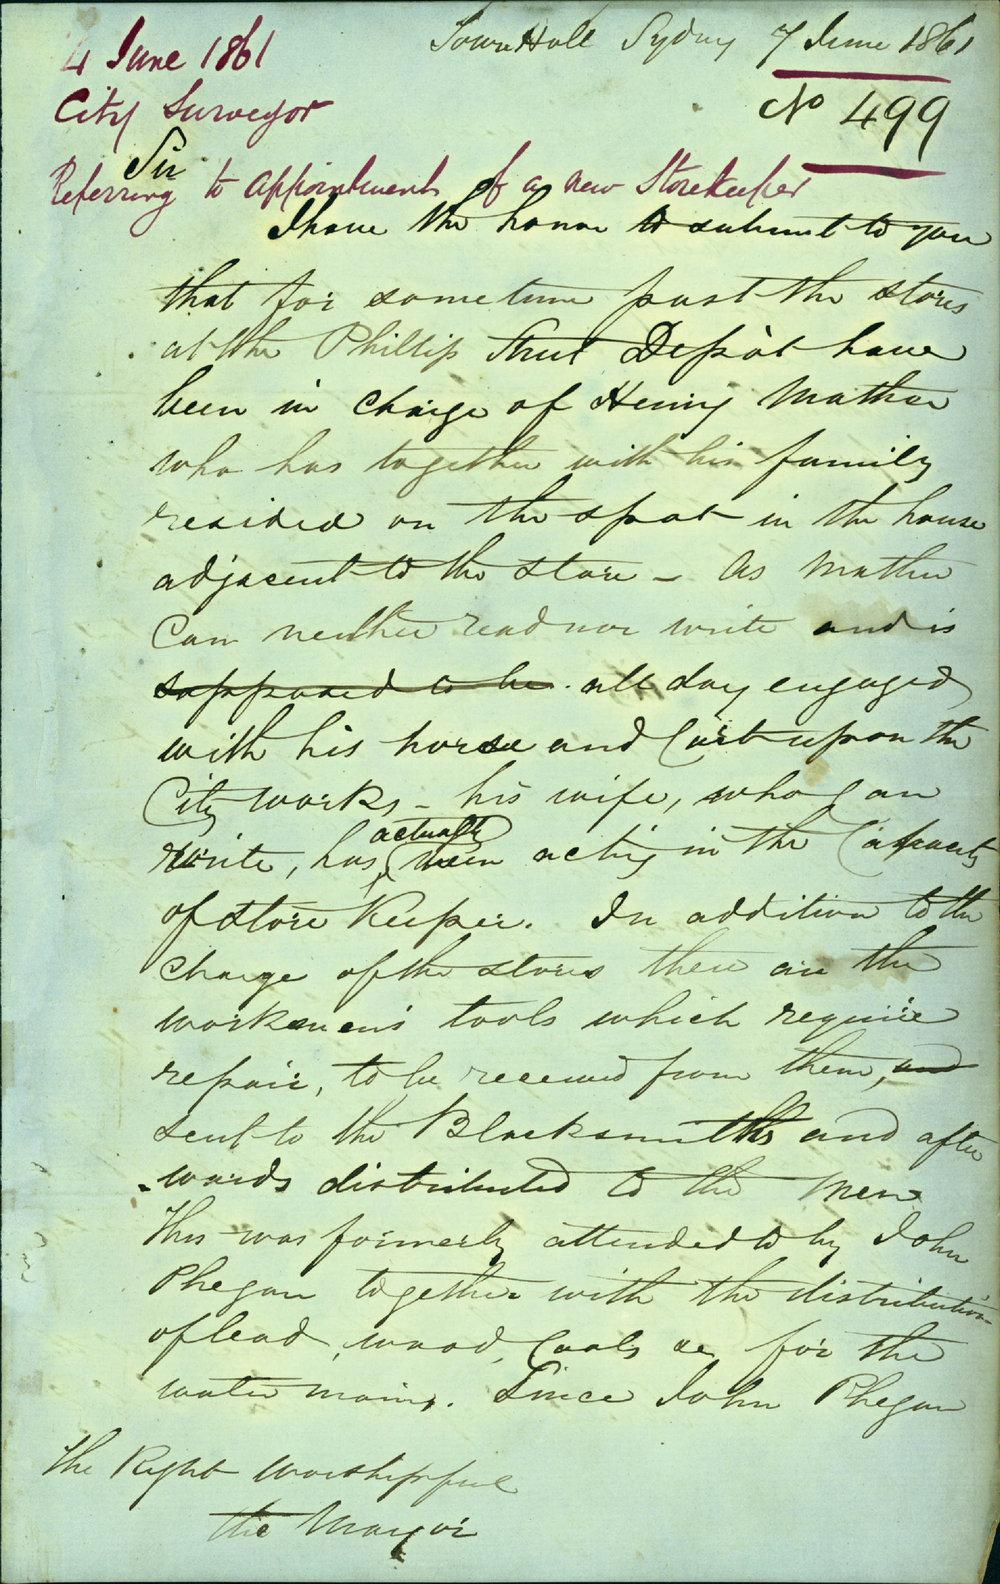 4 June 1861
Town Hall Sydney 7 June 1861
City Surveyor
No 499
Sir
Referring to appointment of a new Storekeeper
I have the honor to submit to you
that for sometime past the stores
at the Phillip Street Depôt have
been in charge of Henry Mather
who has together with his family
resided on the spot in the house
adjacent to the store - As Mather
Can neither read nor write and is
supposed to be all day engaged
with his horse and Cart upon the
City works, - his wife, who Can
write, has actually been acting in the Capacity
of Store Keeper. In addition to the
charge of the stores there are the
workmens tools which require
repair, to be received from them, and
sent to the Blacksmiths and after
wards distributed to the Men
This was formerly attended to by John
Phegan together with the distribution
of lead, wood, Coals &c for the
water mains. Since John Phegan
The Right Worshipful
the Mayor